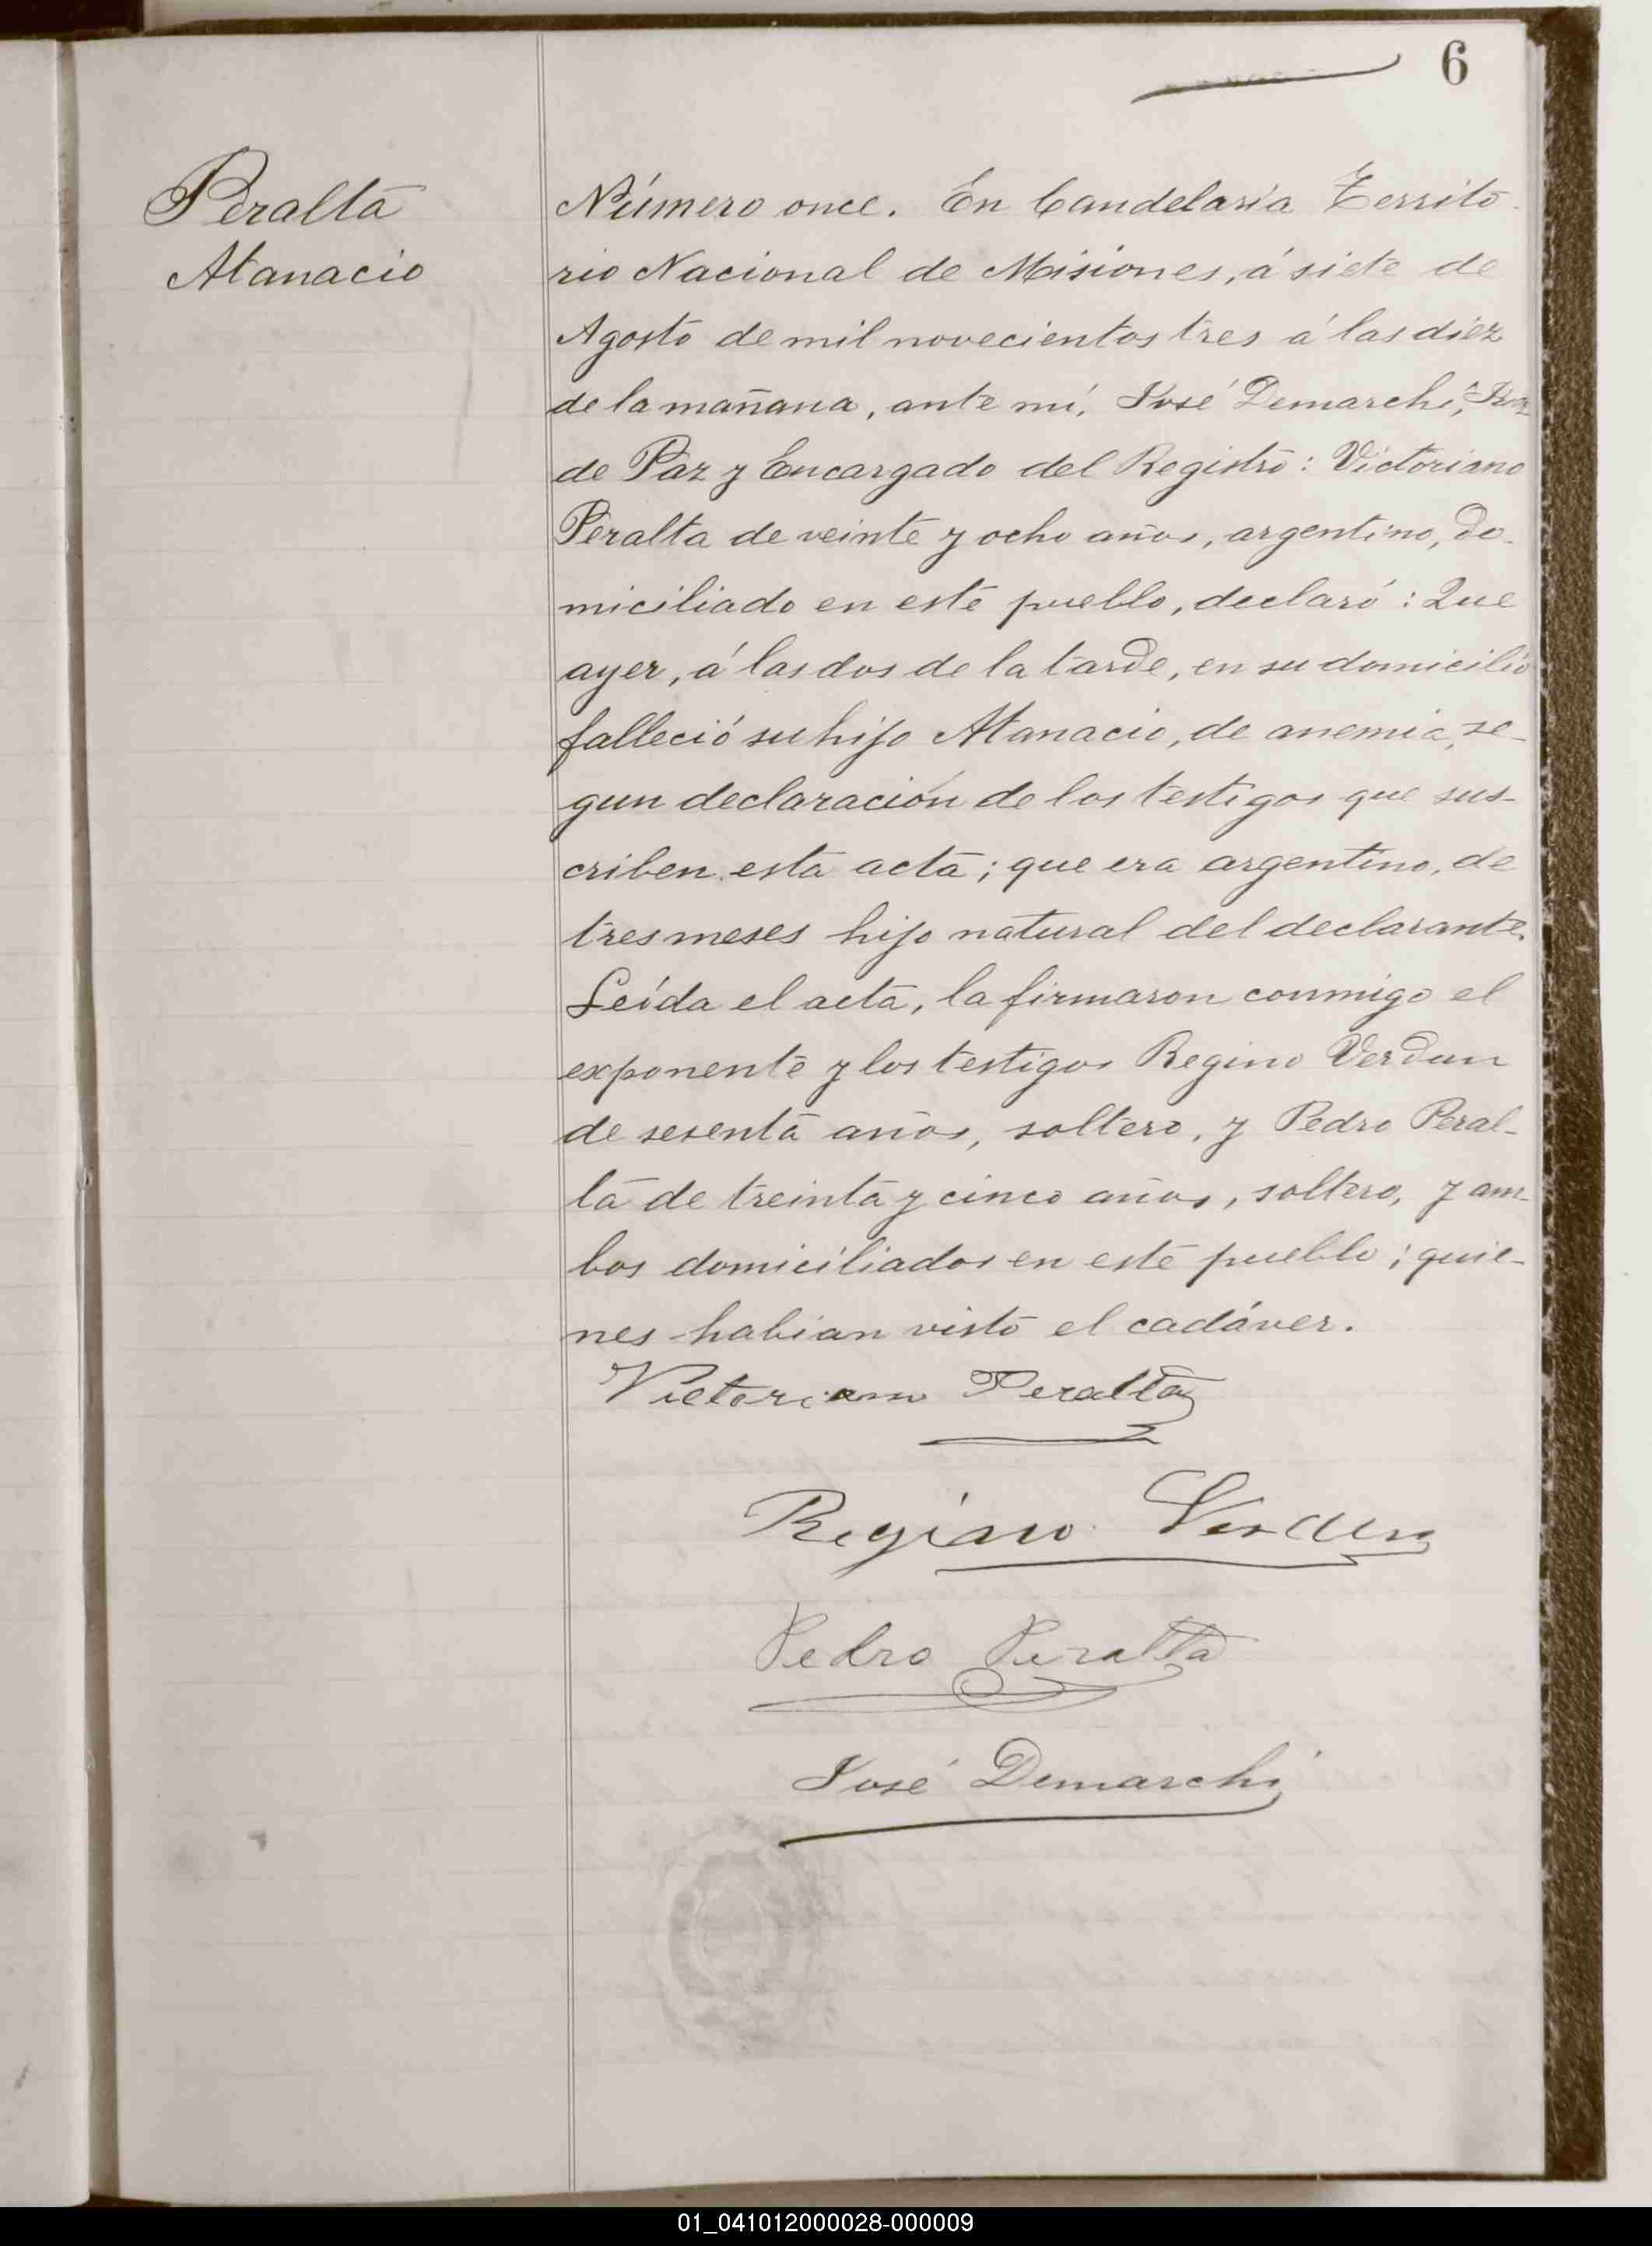 6
Peralta
Atanacio
Número once. En Candelaria Territo-
rio Nacional de Misiones, á siete de
Agosto de mil novecientos tres á las diez
de la mañana, ante mí, José Demarchi, Juez
de Paz y Encargado del Registro: Victoriano
Peralta de veinte y ocho años, argentino, do-
miciliado en este pueblo, declaró: Que
ayer, á las dos de la tarde, en su domicilio
falleció su hijo Atanacio, de anemia, se-
gun declaración de los testigos que sus-
criben esta acta; que era argentino, de
tres meses hijo natural del declarante.
Leída el acta, la firmaron conmigo el
exponente y los testigos Regino Verdun
de sesenta años, soltero, y Pedro Peral-
ta de treinta y cinco años, soltero, y am-
bos domiciliados en este pueblo; quie-
nes habian visto el cadáver.
Victoriano Peralta
Regino Verdun
Pedro Peralta
José Demarchi
01_041012000028-000009